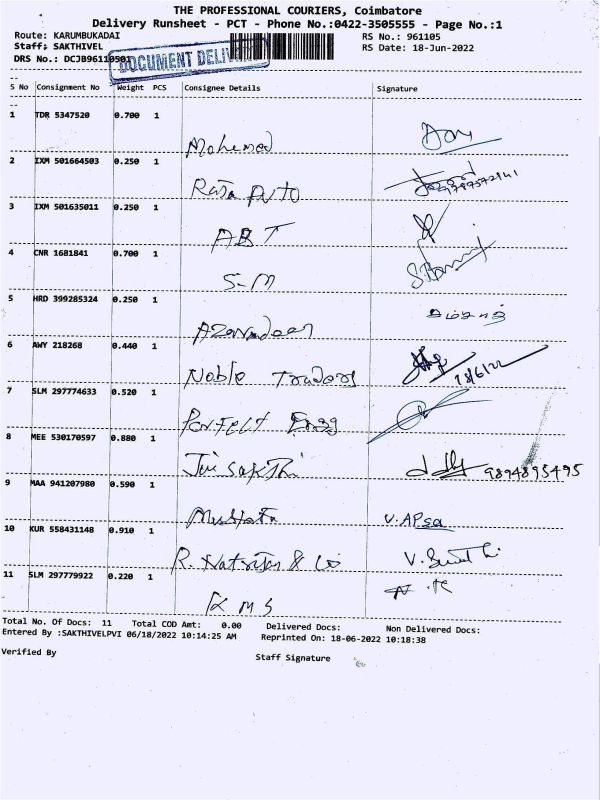 THE PROFESSIONAL COURIERS, Coimbatore
Delivery Runsheet - PCT - Phone No.:0422-3505555 - Page No.:1
Route: KARUMBUKADAI RS No.: 961105
Staff: SAKTHIVEL RS Date: 18-Jun-2022
DRS No.: DCJB961105
DOCUMENT
S No Consignment No Weight PCS Consignee Details Signature
1 TDR 5347520 0.700 1
Mohemad
2 IXM 501664503 0.250 1
Raja Auto
3 IXM 501635011 0.250 1
ABT
4 CNR 1681841 0.700 1
S-M
5 HRD 399285324 0.250 1
6 AWY 218268 0.440 1
Noble Traders 18/6/22
7 SLM 297774633 0.520 1
Perfect Engg
8 MEE 530170597 0.880 1
Jai Sakthi 9894895495
9 MAA 941207980 0.590 1
V. APsa
10 KUR 558431148 0.910 1
R. Natrajan & Co
11 SLM 297779922 0.220 1
K M S
Total No. Of Docs: 11 Total COD Amt: 0.00 Delivered Docs: Non Delivered Docs:
Entered By :SAKTHIVELPVI 06/18/2022 10:14:25 AM Reprinted On: 18-06-2022 10:18:38
Verified By Staff Signature